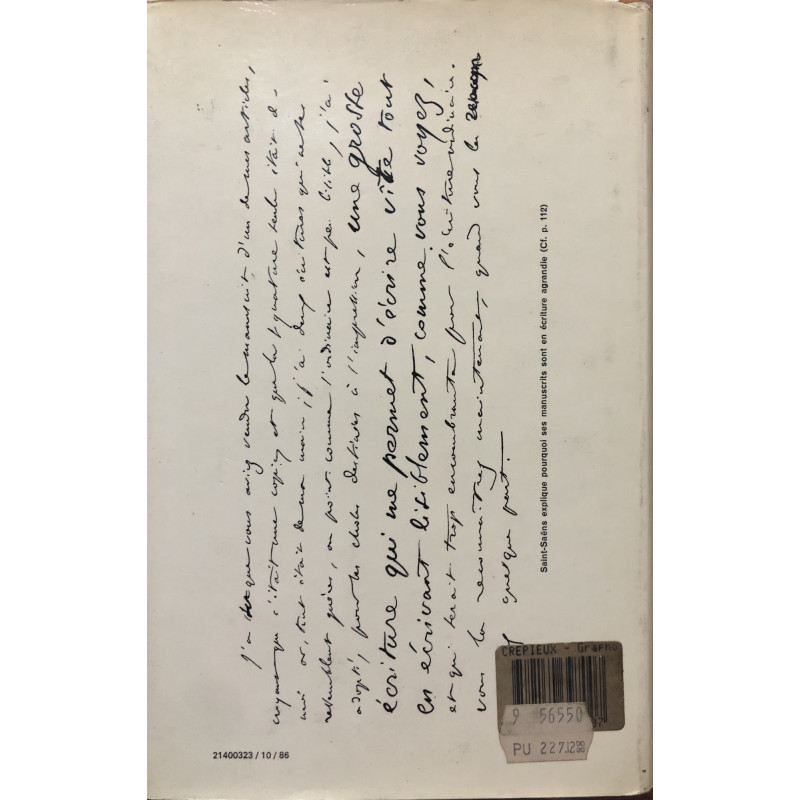 J'ai que vous aviez vendu le manuscrit d'un de mes articles,
croyant que c'était une copie et que la signature seule était de
moi or, tout était de ma main ; j'ai deux écritures qui ne se
ressemblent guères, comme l'ordinaire est peu lisible, j'ai
adopté, pour les choses destinées à l'impression, une grosse
écriture qui me permet d'écrire vite tout
en écrivant lisiblement, comme vous voyez,
et qui serait trop encombrante pour l'écriture ordinaire.
vous la reconnaitrez maintenant, quand vous la
quelque part.
Saint-Saëns explique pourquoi ses manuscrits sont en écriture agrandie (Cf. p. 112)
CREPIEUX - Grapho
9 56550
PU 227
21400323 / 10 / 86